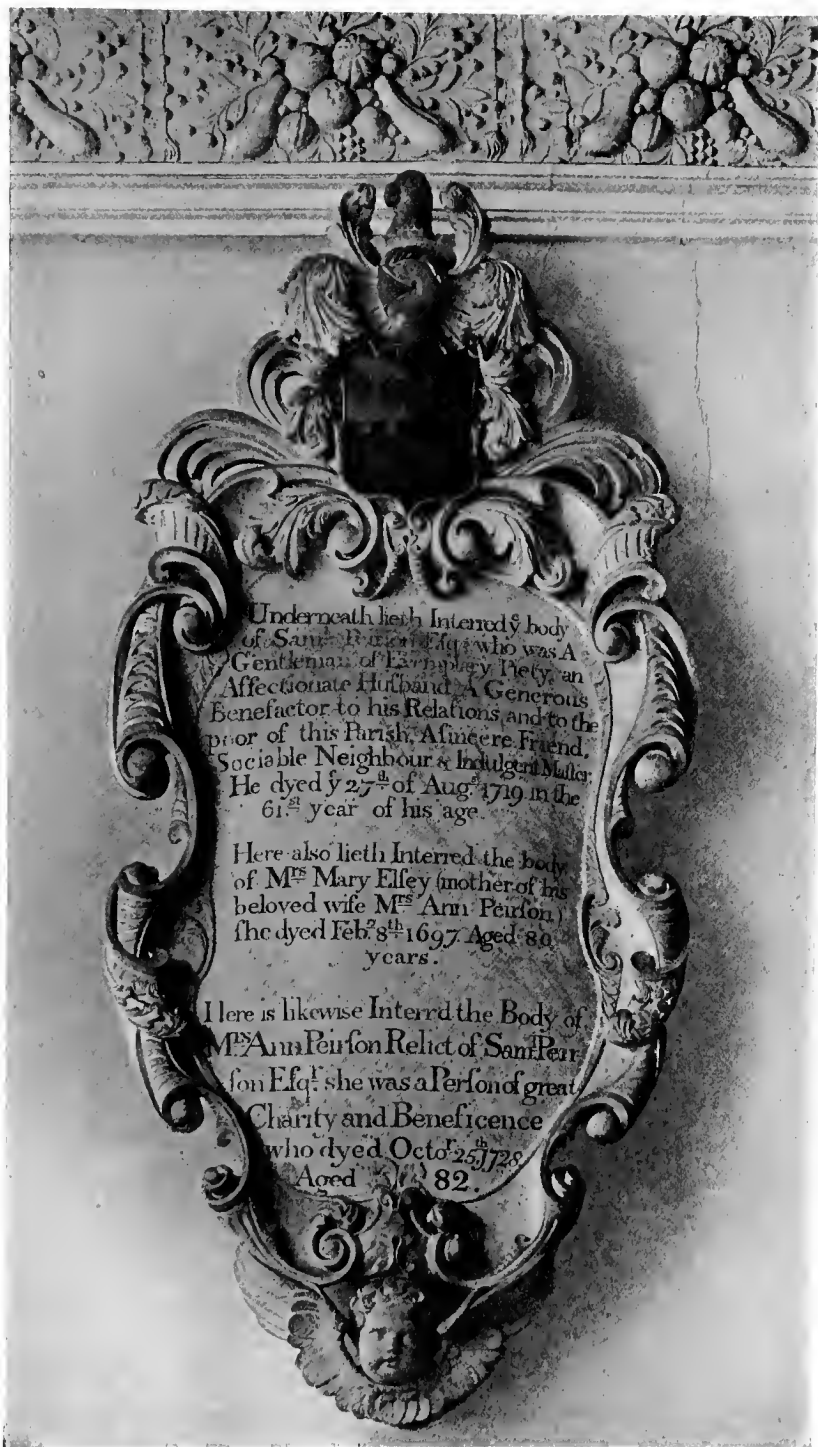 Underneath lieth Interred ẏ body
of Samˡˡ Peirſon Eſqʳ who was A
Gentleman of Exemplery Piety, an
Affectionate Huſband, A Generous
Benefactor to his Relations, and to the
poor of this Parish, A ſincere Friend,
Sociable Neighbour & Indulgent Maſter.
He dyed ẏ 27ᵗʰ of Augˢᵗ 1719 in the
61ˢᵗ year of his age.
Here also lieth Interred the body
of Mʳˢ Mary Elſey (mother of his
beloved wife Mʳˢ Ann Peirſon)
ſhe dyed Febʸ 8ᵗʰ 1697 Aged 80
years.
Here is likewise Interrd the Body of
Mʳˢ Ann Peirſon Relict of Samˡˡ Peir
ſon Eſqʳ she was a Perſon of great
Charity and Beneficence
who dyed Octoʳ 25ᵗʰ 1728
Aged 82.